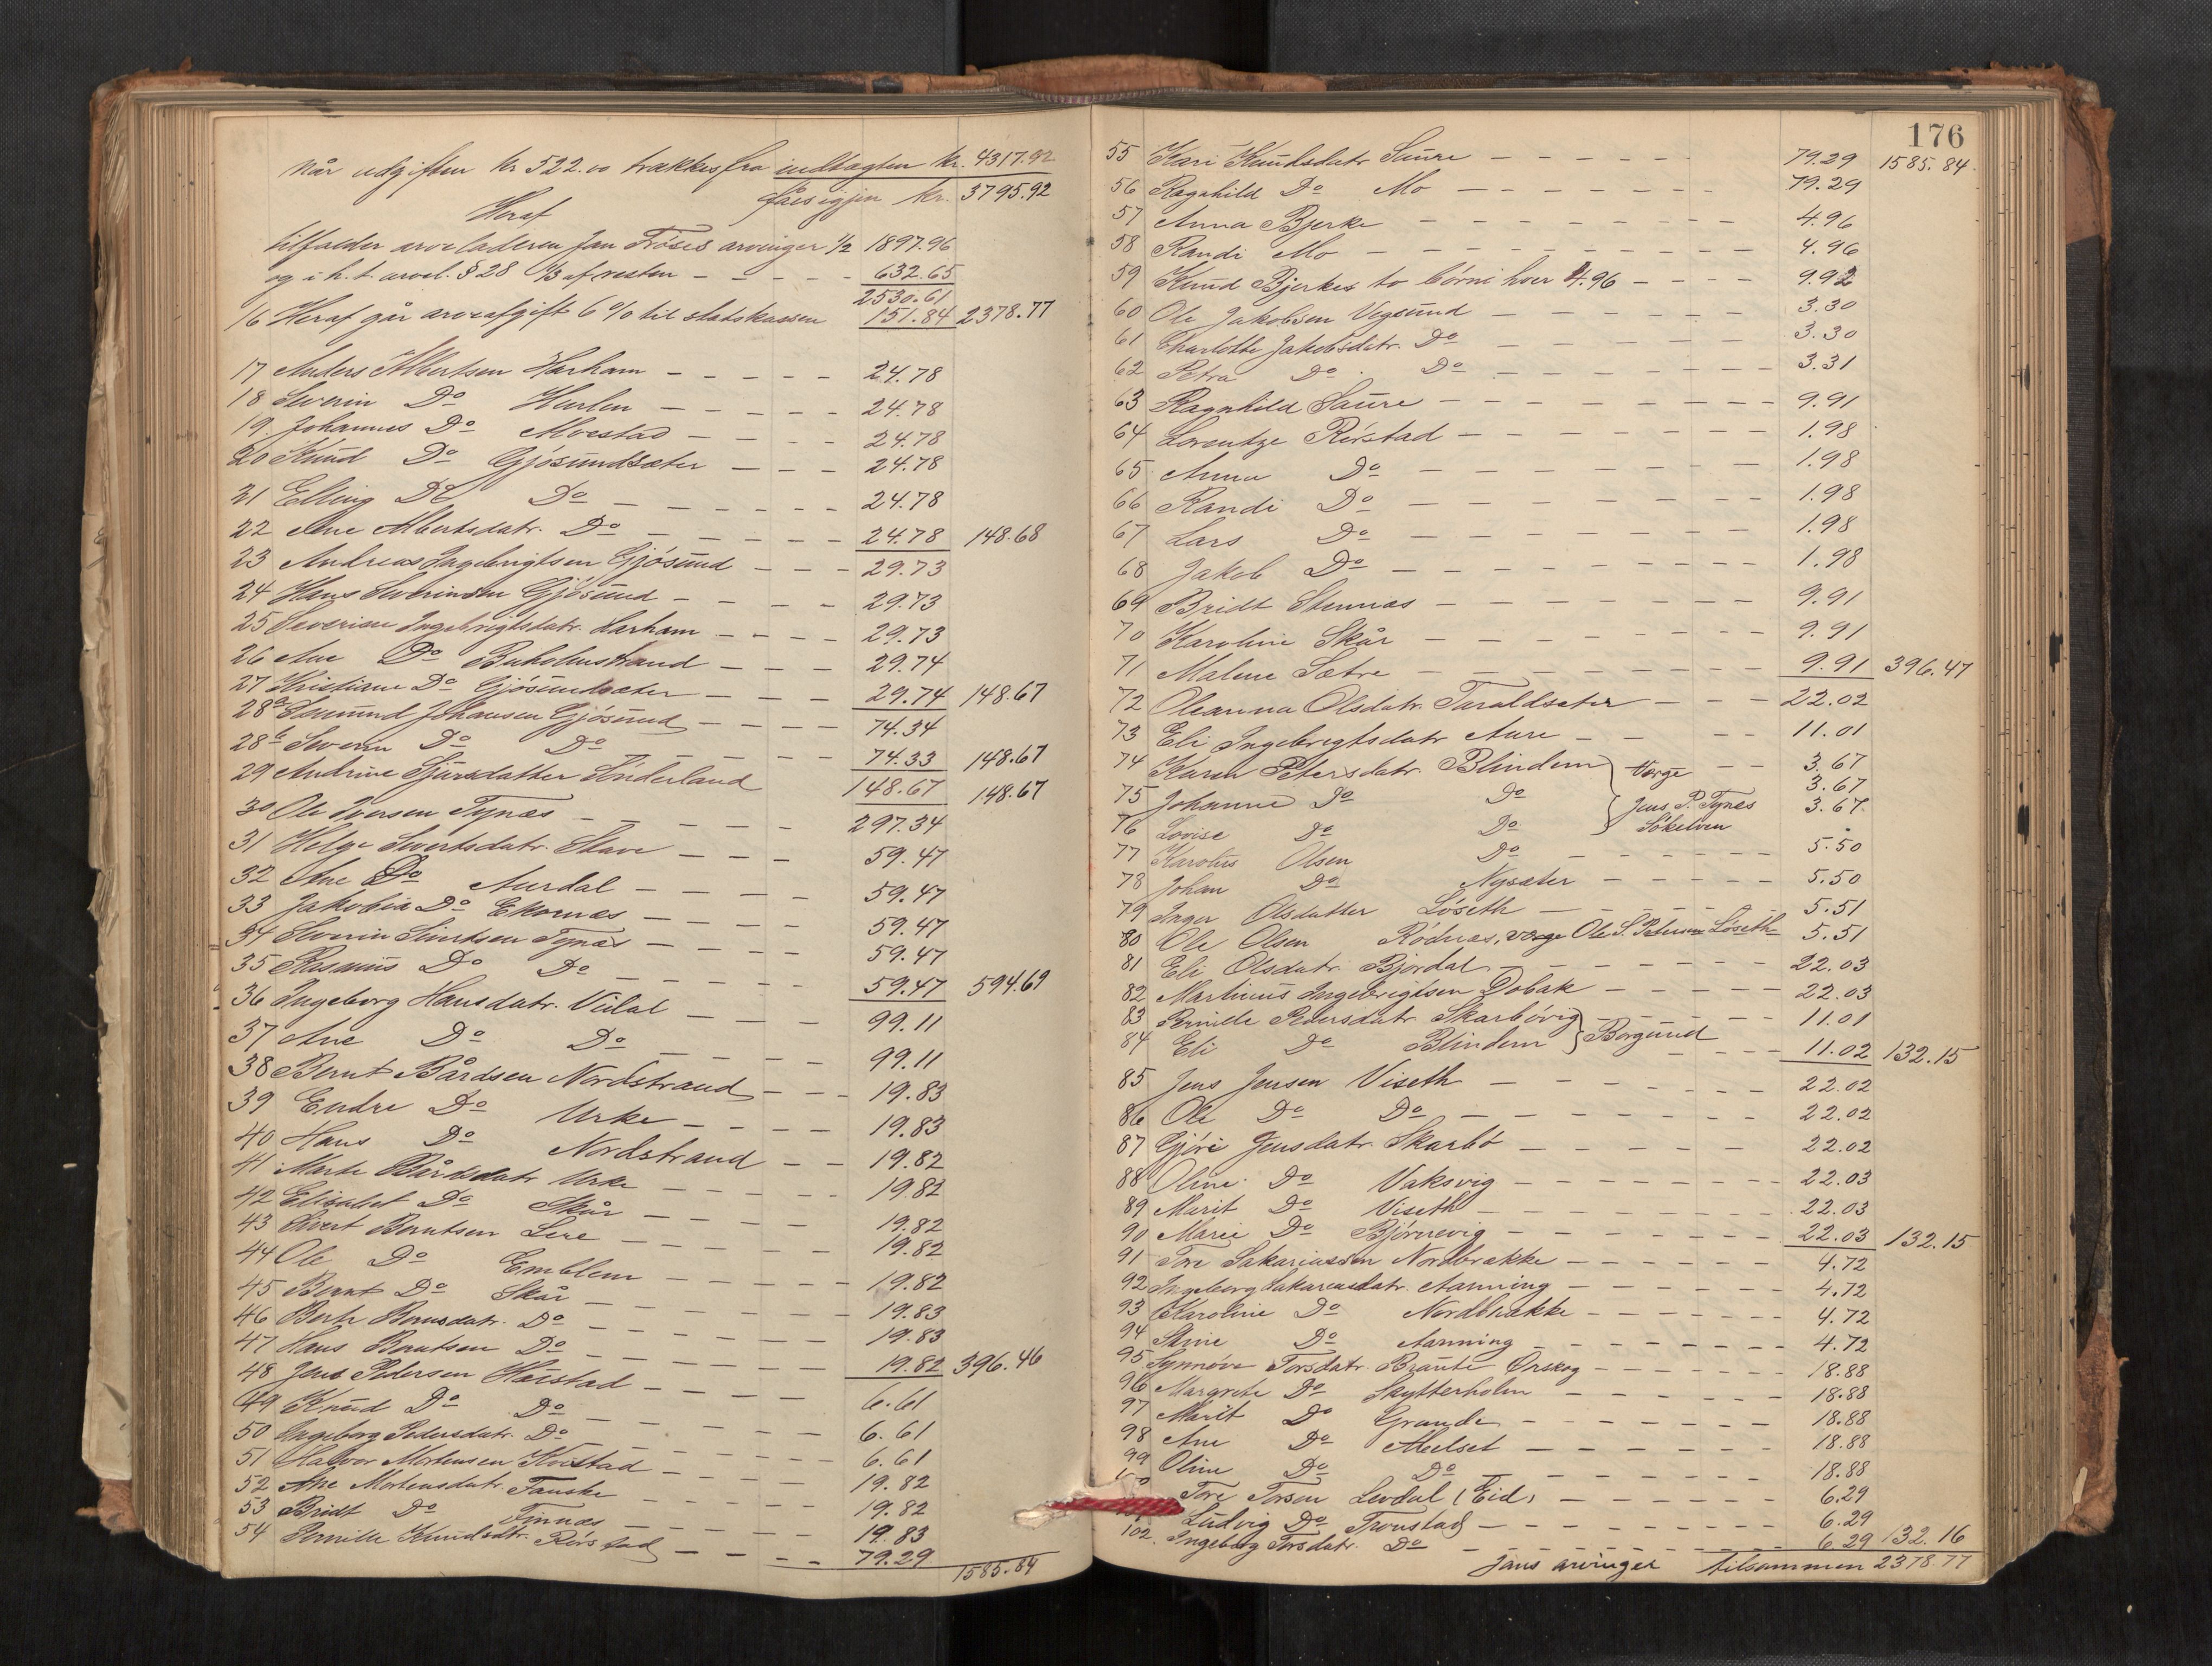 Når udgiften kr 522.00 trækkes fra indtagten kr. 4317.92
fåes igjen kr. 3795.92
Heraf
tilfalder arveladeren Jan Frøses arvinger 1/2 1897.96
og i h. t. arvel. § 28 1/3 af resten - - - - 632.65
2530.61
16 Heraf går arveafgift 6 % til statskassen 151.84 2378.77
17 Anders Albertsen Harham - - - - - 24.78
18 Severin Do Hurlen - - - - - 24.78
19 Johannes Do Alvestad - - - - 24.78
20 Knud Do Gjøsundsæter - - - 24.78
21 Elling Do Do - - - - - - 24.78
22 Ane Albertsdatr. Do - - - - - - 24.78 148.68
23 Andreas Ingebrigtsen Gjøsund - - - 29.73
24 Hans Severinsen Gjøsund - - - - 29.73
25 Severine Ingebrigtsdatr. Harham - - - - 29.73
26 Ane Do Bakholmstrand - - - 29.74
27 Kristiane Do Gjøsundsæter - - - 29.74 148.67
28a Edmund Johansen Gjøsund - - - - 74.34
28b Severin Do Do - - - - - - 74.33 148.67
29 Andrine Sjursdatter Sønderland 148.67 148.67
30 Ole Iversen Tynæs - - - - - - 297.34
31 Helge Sivertsdatr. Stave - - - 59.47
32 Ane Do Aurdal - - - - 59.47
33 Jakobia Do Ekornæs - - - - 59.47
34 Severin Sivertsen Tynæs - - - - 59.47
35 Rasmus Do Do - - - - - - 59.47 594.69
36 Ingeborg Hansdatr. Vidal - - - - 99.11
37 Ane Do Do - - - - - 99.11
38 Bernt Bårdsen Nordstrand - - - 19.83
39 Endre Do Urke - - - - 19.83
40 Hans Do Nordstrand - - 19.82
41 Marte Bårdsdatr Urke - - - - - 19.82
42 Elisabet Do Skår - - - - - 19.82
43 Sivert Berntsen Lere - - - - - 19.82
44 Ole Do Emblem - - - - - 19.82
45 Bernt Do Skår - - - - - - 19.83
46 Berte Berntsdatr. Do - - - - - - 19.83
47 Hans Berntsen Do - - - - - - 19.82 396.46
48 Jens Pedersen Hovstad - - - - 6.61
49 Knud Do Do - - - - - 6.61
50 Ingeborg Pedersdatr. Do - - - - - 6.61
51 Halvor Mortensen Hovstad - - - - 19.82
52 Ane Mortensdatr. Fauske - - - - 19.82
53 Bridt Do Finnæs - - - - - 19.83
54 Pernille Knudsdtr. Rørstad - - - - 79.29
1585.84
176
55 Kari Knudsdatr Saure - - - - - - 79.29 1585.84
56 Ragnhild Do Mo - - - - - - - 79.29
57 Anna Bjerke - - - - - - - - 4.96
58 Randi Mo - - - - - - - - 4.96
59 Knud Bjerkes to børn hver 4.96 - - - - 9.92
60 Ole Jakobsen Vegsund - - - - - - 3.30
61 Charlotte Jakobsdatr. Do - - - - - - 3.30
62 Petra Do Do - - - - - - - - 3.31
63 Ragnhild Saure - - - - - - - - 9.91
64 Lorentze Rørstad - - - - - - - 1.98
65 Anna Do - - - - - - - - 1.98
66 Randi Do - - - - - - - - 1.98
67 Lars Do - - - - - - - - 1.98
68 Jakob Do - - - - - - - - 1.98
69 Bridt Stennæs - - - - - - - - 9.91
70 Karoline Skår - - - - - - - - 9.91
71 Malene Sætre - - - - - - - - 9.91 396.47
72 Oleanna Olsdatr. Taraldsæter - - - 22.02
73 Eli Ingebrigtsdatr Aure - - - - - 11.01
74 Karen Petersdatr. Blindem } Værge - - 3.67
75 Johanne Do Do { Jens P. Tynes 3.67
76 Lovise Do Do } Søkelven 3.67
77 Karolus Olsen Do - - - - - - 5.50
78 Johan Do Nysæter - - - - - 5.50
79 Inger Olsdatter Løseth - - - - - - 5.51
80 Ole Olsen Rødnæs, værge Ole S. Petersen Løseth 5.51
81 Eli Olsdatr Bjørdal - - - - - - - 22.03
82 Martinus Ingebrigtsen Dobak - - - - - 22.03
83 Pernille Pedersdatr. Skarbøvig } - - - - 11.01
84 Eli Do Blindem } Borgund - - - - 11.02 132.15
85 Jens Jensen Viseth - - - - - - - 22.02
86 Ole Do Do - - - - - - - 22.02
87 Gjøri Jensdatr. Skarbø - - - - - - 22.02
88 Oline Do Vaksvig - - - - - - - 22.03
89 Marit Do Viseth - - - - - - - 22.03
90 Marie Do Bjørnevig - - - - - - - 22.03 132.15
91 Tore Sakariassen Nordbrække - - - - - - 4.72
92 Ingeborg Sakariasdatr. Aarning - - - - - 4.72
93 Karoline Do Nordbrække - - - - - 4.72
94 Stine Do Aarning - - - - - - 4.72
95 Synnøve Torsdatr. Braute Ørskog - - - - 18.88
96 Margrete Do Skytterholm - - - - - 18.88
97 Marit Do Grande - - - - - - 18.88
98 Ane Do Abelset - - - - - 18.88
99 Oline Do Do - - - - - - 18.88
Tore Torsen Levdal (Eid) - - - - - - 6.29
Ludvig Do Tronstad - - - - - - - 6.29
102. Ingeborg Torsdatr. Do - - - - - - - 6.29 132.16
Jans arvinger tilsammen 2378.77